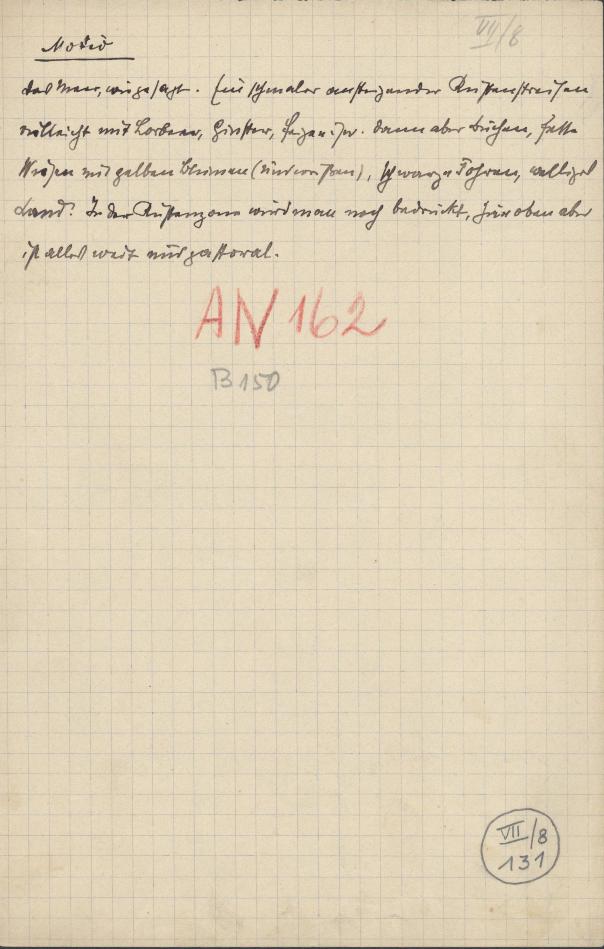 VII/8
Motiv
das Meer, wie gesagt. Ein schmaler ansteigender Küstenstreifen
vielleicht mit Lorbeer, Ginster, Feigen usw. dann aber Buchen, fette
Wiesen mit gelben Blumen (und weißen), schwarze Föhren, welliges
Land. In der Küstenzone wird man noch bedrückt, hier oben aber
ist alles weit und pastoral.
AN 162
B 150
VII/8
131